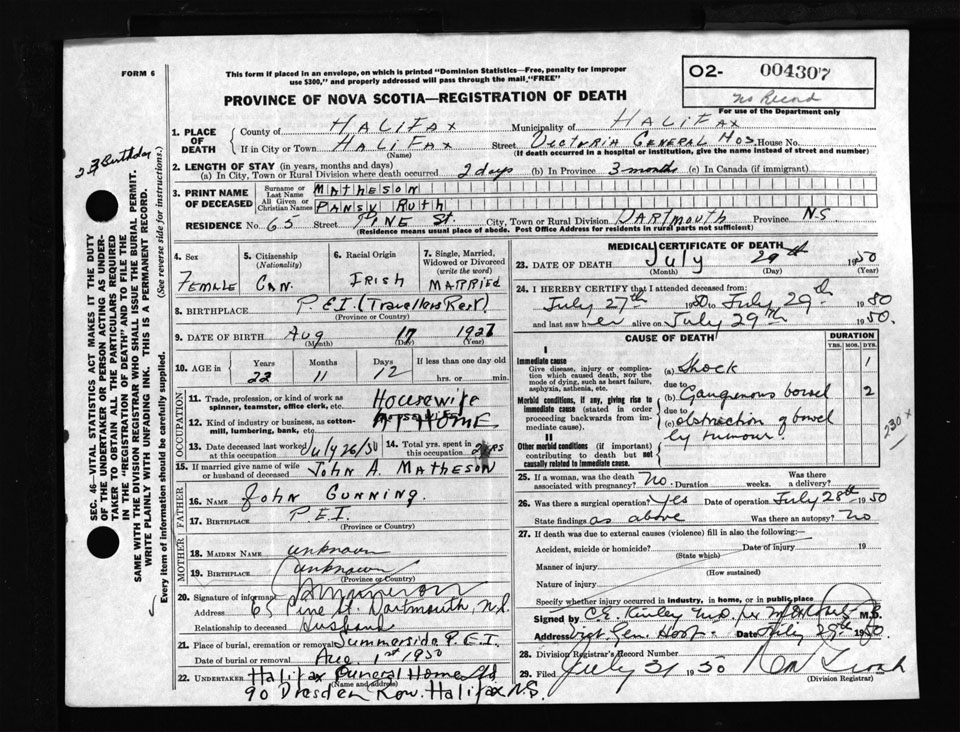 FORM 6
This form if placed in an envelope, on which is printed "Dominion Statistics—Free, penalty for improper
use $300," and properly addressed will pass through the mail, "FREE"
O2- 004307
No Record
For use of the Department only
PROVINCE OF NOVA SCOTIA—REGISTRATION OF DEATH
1. PLACE OF DEATH
County of HALIFAX Municipality of HALIFAX
If in City or Town HALIFAX Street VICTORIA GENERAL HOS. House No.
(Name) (If death occurred in a hospital or institution, give the name instead of street and number)
2. LENGTH OF STAY (in years, months and days)
(a) In City, Town or Rural Division where death occurred 2 days (b) In Province 3 months (c) In Canada (if immigrant)
3. PRINT NAME OF DECEASED
Surname or Last Name MATHESON
All Given or Christian Names PANSY RUTH
RESIDENCE No. 65 Street PINE St. City, Town or Rural Division DARTMOUTH Province N.S.
(Residence means usual place of abode. Post Office Address for residents in rural parts not sufficient)
4. Sex FEMALE
5. Citizenship (Nationality) CAN.
6. Racial Origin IRISH
7. Single, Married, Widowed or Divorced (write the word) MARRIED
8. BIRTHPLACE P.E.I. (Travellers Rest)
(Province or Country)
9. DATE OF BIRTH Aug 17 1927
(Month) (Day) (Year)
10. AGE in Years 22 Months 11 Days 12 If less than one day old
hrs. or min.
OCCUPATION
11. Trade, profession, or kind of work as spinner, teamster, office clerk, etc. Housewife
12. Kind of industry or business, as cotton-mill, lumbering, bank, etc. AT HOME
13. Date deceased last worked at this occupation July 26/50
14. Total yrs. spent in this occupation 2 yrs
15. If married give name of wife or husband of deceased John A. Matheson
FATHER
16. Name John Gunning.
17. Birthplace P.E.I.
(Province or Country)
MOTHER
18. Maiden Name unknown
19. Birthplace unknown
(Province or Country)
20. Signature of informant
Address 65 Pine St. Dartmouth, N.S.
Relationship to deceased Husband
21. Place of burial, cremation or removal Summerside P.E.I.
Date of burial or removal Aug. 1st 1950
22. Undertaker Halifax Funeral Home Ltd.
(Name and address)
90 Dresden Row. Halifax N.S.
MEDICAL CERTIFICATE OF DEATH
23. DATE OF DEATH July 29th 1950
(Month) (Day) (Year)
24. I HEREBY CERTIFY that I attended deceased from:
July 27th 1950 to July 29th 1950
and last saw her alive on July 29th 1950.
CAUSE OF DEATH
DURATION
YRS. MOS. DYS.
I
Immediate cause
Give disease, injury or complication which caused death, NOT the mode of dying, such as heart failure, asphyxia, asthenia, etc.
(a) Shock 1
due to
Morbid conditions, if any, giving rise to immediate cause (stated in order proceeding backwards from immediate cause).
(b) Gangrenous bowel 2
due to
(c) obstruction of bowel
by tumour.
II
Other morbid conditions (if important) contributing to death but not causally related to immediate cause.
230 x
25. If a woman, was the death associated with pregnancy? No. Duration weeks. Was there a delivery?
26. Was there a surgical operation? Yes Date of operation July 28th 1950
State findings as above Was there an autopsy? No
27. If death was due to external causes (violence) fill in also the following:—
Accident, suicide or homicide? Date of injury 19
(State which)
Manner of injury
(How sustained)
Nature of injury
Specify whether injury occurred in industry, in home, or in public place
Signed by C.E. Kinley M.D. per M.D.
Address Vict. Gen. Hosp. Date July 29th 1950.
28. Division Registrar's Record Number
29. Filed July 31 1950
(Division Registrar)
23 Birthday
SEC. 46—VITAL STATISTICS ACT MAKES IT THE DUTY
OF THE UNDERTAKER OR PERSON ACTING AS UNDER-
TAKER TO OBTAIN ALL THE PARTICULARS REQUIRED
IN THE "REGISTRATION OF DEATH" AND TO FILE THE
SAME WITH THE DIVISION REGISTRAR WHO SHALL ISSUE THE BURIAL PERMIT.
WRITE PLAINLY WITH UNFADING INK. THIS IS A PERMANENT RECORD.
Every item of information should be carefully supplied. (See reverse side for instructions.)